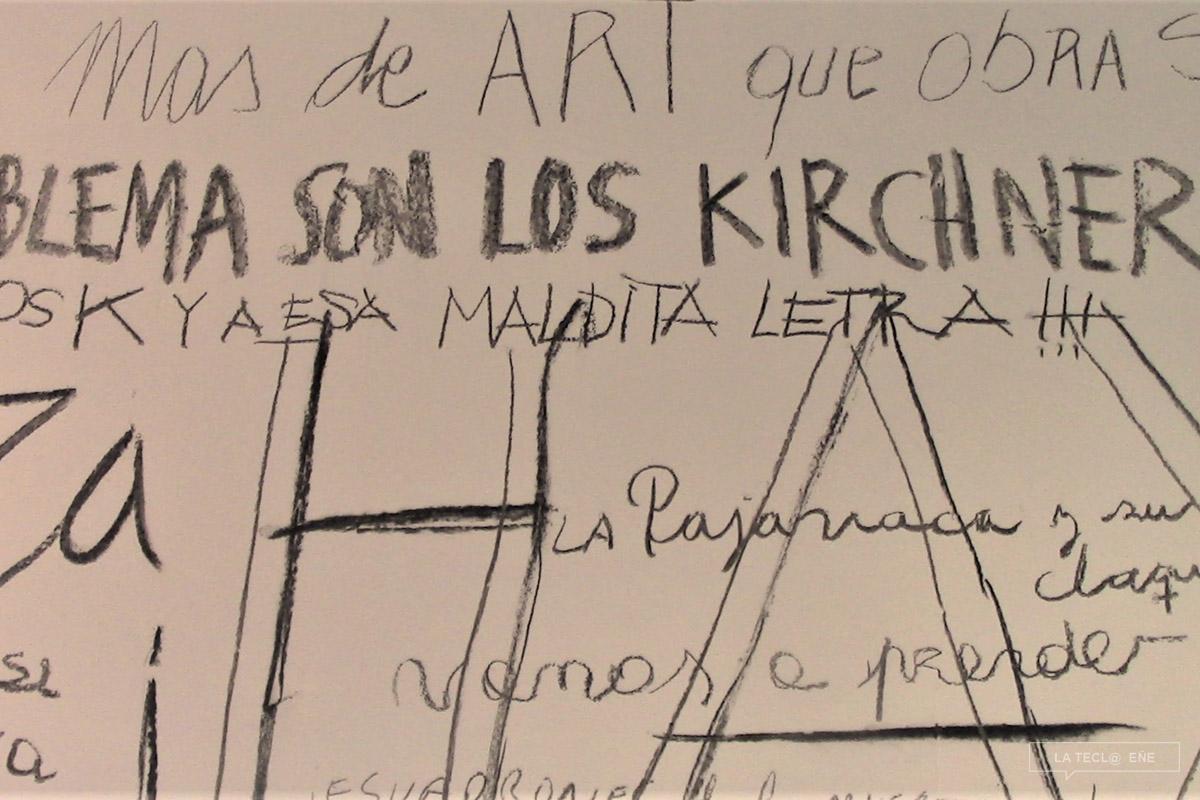 Mas de ART que ObRA S
BLEMA SON LOS KIRCHNER
OS K Y A ESA MALDITA LETRA !!!
za
HA
LA Pajarraca y su
claqu
vamos a perder
LA TECL@ EÑE